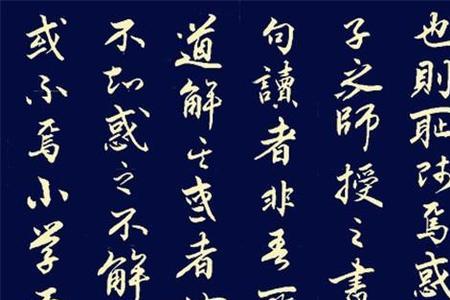 也則耻师焉惑
子之師授之書
句讀者非吾所
道解其惑者
不知惑之不解
或不焉小學